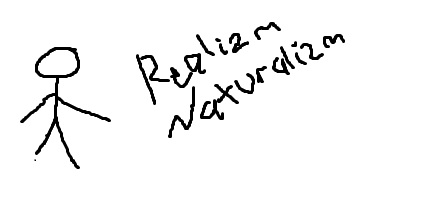 Realizm
Naturalizm